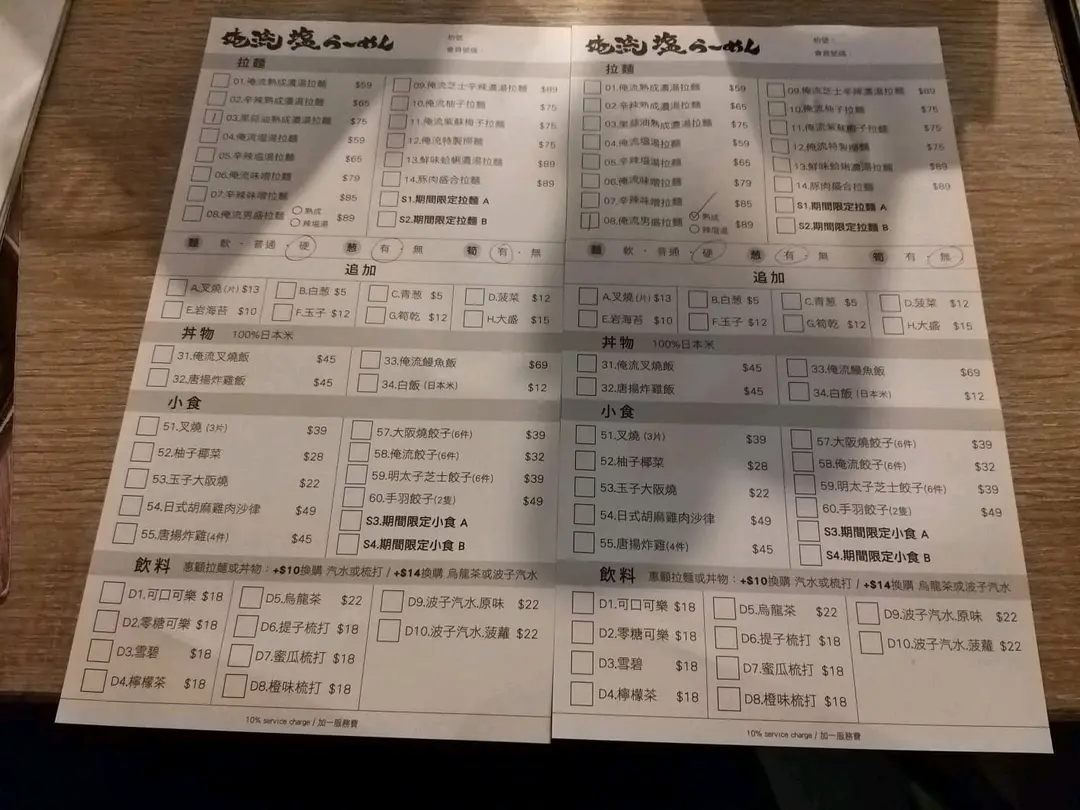 俺流塩らーめん
枱號:
會員號碼:
拉麵
01.俺流熟成濃湯拉麵 $59
02.辛辣熟成濃湯拉麵 $65
03.黑蒜油熟成濃湯拉麵 $75
04.俺流塩湯拉麵 $59
05.辛辣塩湯拉麵 $65
06.俺流味噌拉麵 $79
07.辛辣味噌拉麵 $85
08.俺流男盛拉麵 熟成 辣塩湯 $89
09.俺流芝士辛辣濃湯拉麵 $89
10.俺流柚子拉麵 $75
11.俺流紫蘇梅子拉麵 $75
12.俺流特製撈麵 $75
13.鮮味蛤蜊濃湯拉麵 $89
14.豚肉盛合拉麵 $89
S1.期間限定拉麵 A
S2.期間限定拉麵 B
麵 軟・普通・硬 葱 有・無 筍 有・無
追加
A.叉燒(片) $13 B.白葱 $5 C.青葱 $5 D.菠菜 $12
E.岩海苔 $10 F.玉子 $12 G.筍乾 $12 H.大盛 $15
丼物 100%日本米
31.俺流叉燒飯 $45 33.俺流鰻魚飯 $69
32.唐揚炸雞飯 $45 34.白飯 (日本米) $12
小食
51.叉燒 (3片) $39
52.柚子椰菜 $28
53.玉子大阪燒 $22
54.日式胡麻雞肉沙律 $49
55.唐揚炸雞(4件) $45
57.大阪燒餃子(6件) $39
58.俺流餃子(6件) $32
59.明太子芝士餃子(6件) $39
60.手羽餃子(2隻) $49
S3.期間限定小食 A
S4.期間限定小食 B
飲料 惠顧拉麵或丼物:+$10換購 汽水或梳打 / +$14換購 烏龍茶或波子汽水
D1.可口可樂 $18
D2.零糖可樂 $18
D3.雪碧 $18
D4.檸檬茶 $18
D5.烏龍茶 $22
D6.提子梳打 $18
D7.蜜瓜梳打 $18
D8.橙味梳打 $18
D9.波子汽水.原味 $22
D10.波子汽水.菠蘿 $22
10% service charge / 加一服務費
俺流塩らーめん
枱號:
會員號碼:
拉麵
01.俺流熟成濃湯拉麵 $59
02.辛辣熟成濃湯拉麵 $65
03.黑蒜油熟成濃湯拉麵 $75
04.俺流塩湯拉麵 $59
05.辛辣塩湯拉麵 $65
06.俺流味噌拉麵 $79
07.辛辣味噌拉麵 $85
08.俺流男盛拉麵 熟成 辣塩湯 $89
09.俺流芝士辛辣濃湯拉麵 $89
10.俺流柚子拉麵 $75
11.俺流紫蘇梅子拉麵 $75
12.俺流特製撈麵 $75
13.鮮味蛤蜊濃湯拉麵 $89
14.豚肉盛合拉麵 $89
S1.期間限定拉麵 A
S2.期間限定拉麵 B
麵 軟・普通・硬 葱 有・無 筍 有・無
追加
A.叉燒(片) $13 B.白葱 $5 C.青葱 $5 D.菠菜 $12
E.岩海苔 $10 F.玉子 $12 G.筍乾 $12 H.大盛 $15
丼物 100%日本米
31.俺流叉燒飯 $45 33.俺流鰻魚飯 $69
32.唐揚炸雞飯 $45 34.白飯 (日本米) $12
小食
51.叉燒 (3片) $39
52.柚子椰菜 $28
53.玉子大阪燒 $22
54.日式胡麻雞肉沙律 $49
55.唐揚炸雞(4件) $45
57.大阪燒餃子(6件) $39
58.俺流餃子(6件) $32
59.明太子芝士餃子(6件) $39
60.手羽餃子(2隻) $49
S3.期間限定小食 A
S4.期間限定小食 B
飲料 惠顧拉麵或丼物:+$10換購 汽水或梳打 / +$14換購 烏龍茶或波子汽水
D1.可口可樂 $18
D2.零糖可樂 $18
D3.雪碧 $18
D4.檸檬茶 $18
D5.烏龍茶 $22
D6.提子梳打 $18
D7.蜜瓜梳打 $18
D8.橙味梳打 $18
D9.波子汽水.原味 $22
D10.波子汽水.菠蘿 $22
10% service charge / 加一服務費